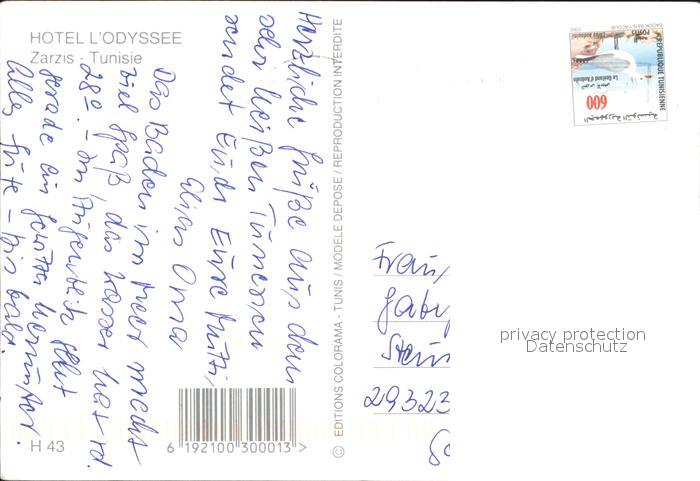 HOTEL L'ODYSSEE
Zarzis - Tunisie
Herzliche Grüße aus dem
sehr heißen Tunesien
sendet Euch Eure Mutti,
Oma
Das Baden im Meer macht
viel Spaß, das Wasser hat rd.
28°. - Im Augenblick geht
gerade ein Gewitter herunter.
Alles Gute - bis bald.
H 43
6 192100 300013 >
© EDITIONS COLORAMA - TUNIS / MODELE DEPOSE / REPRODUCTION INTERDITE
REPUBLIQUE TUNISIENNE
POSTES
Le Goéland d'Audouin
600
الجمهورية التونسية
Frau
Gaby
Stein
29323
privacy protection
Datenschutz